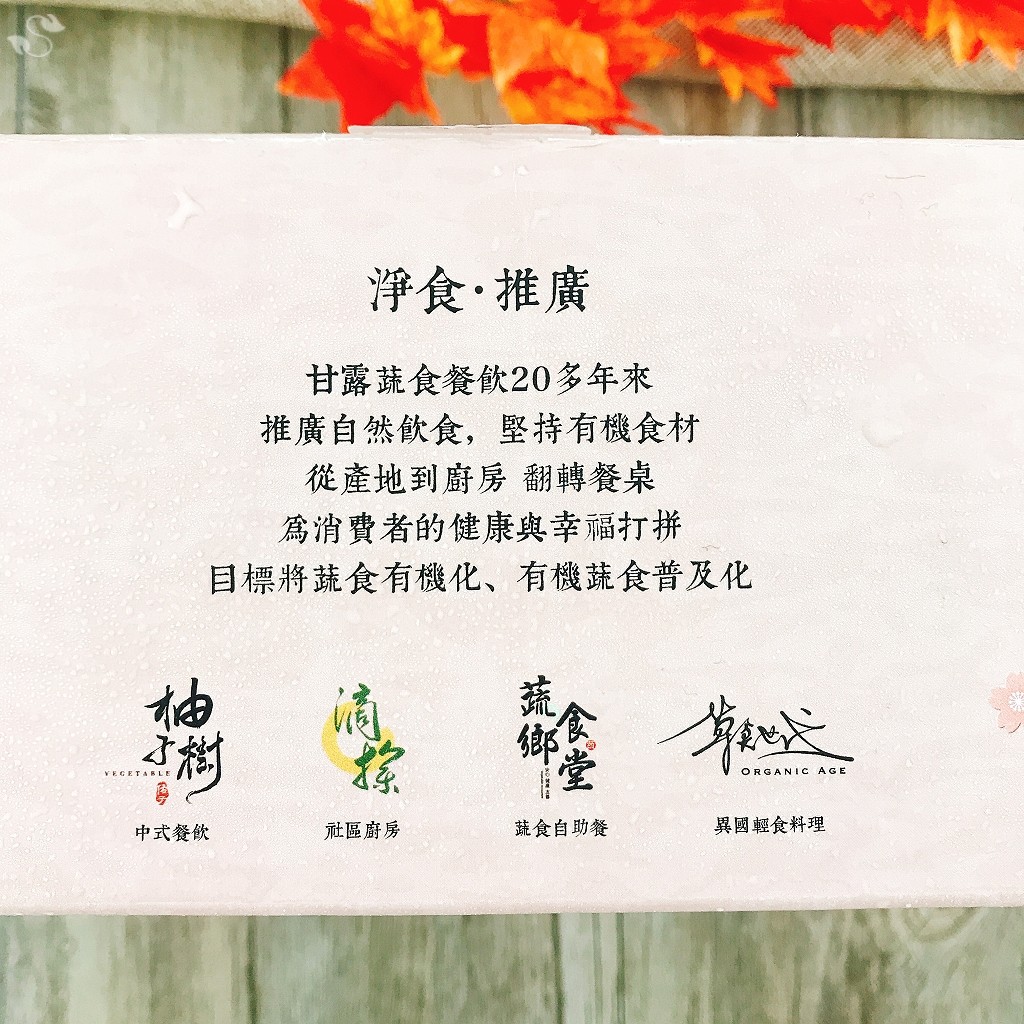 淨食·推廣
甘露蔬食餐飲20多年來
推廣自然飲食，堅持有機食材
從產地到廚房 翻轉餐桌
為消費者的健康與幸福打拼
目標將蔬食有機化、有機蔬食普及化
柚子樹
VEGETABLE
中式餐飲
社區廚房
蔬鄉
食堂
蔬食自助餐
ORGANIC AGE
異國輕食料理